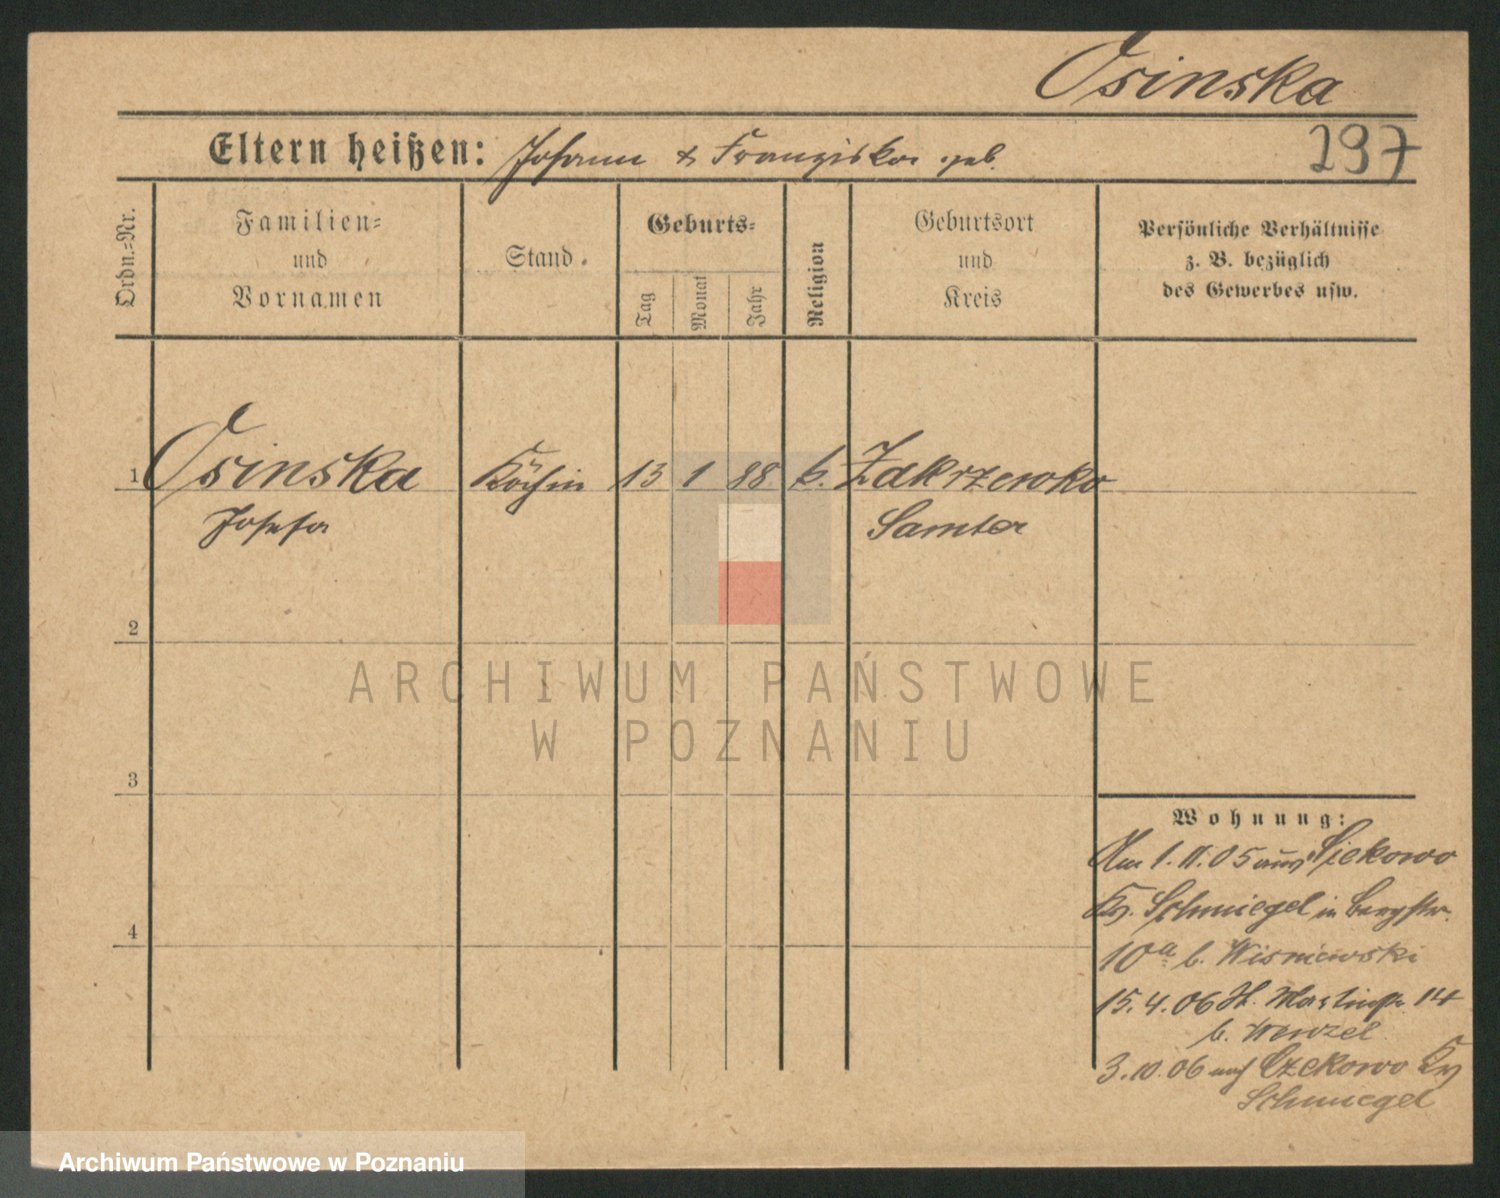 Osinska
Eltern heißen: Johann & Franziska geb.
297
Ordn.=Nr.
Familien=
und
Vornamen
Stand.
Geburts=
Tag
Monat
Jahr
Religion
Geburtsort
und
Kreis
Persönliche Verhältnisse
z. B. bezüglich
des Gewerbes usw.
1 Osinska Köchin 13 1 88 k. Zakrzewko
Josefa Samter
2
ARCHIWUM PAŃSTWOWE
W POZNANIU
3
Wohnung:
1.11.05 aus
Kr. Schmiegel in Bergstr.
4
10a b. Wisniewski
15.4.06 St. Martinstr. 14
b. Wenzel
3.10.06 nach Czekowo Kr.
Schmiegel
Archiwum Państwowe w Poznaniu